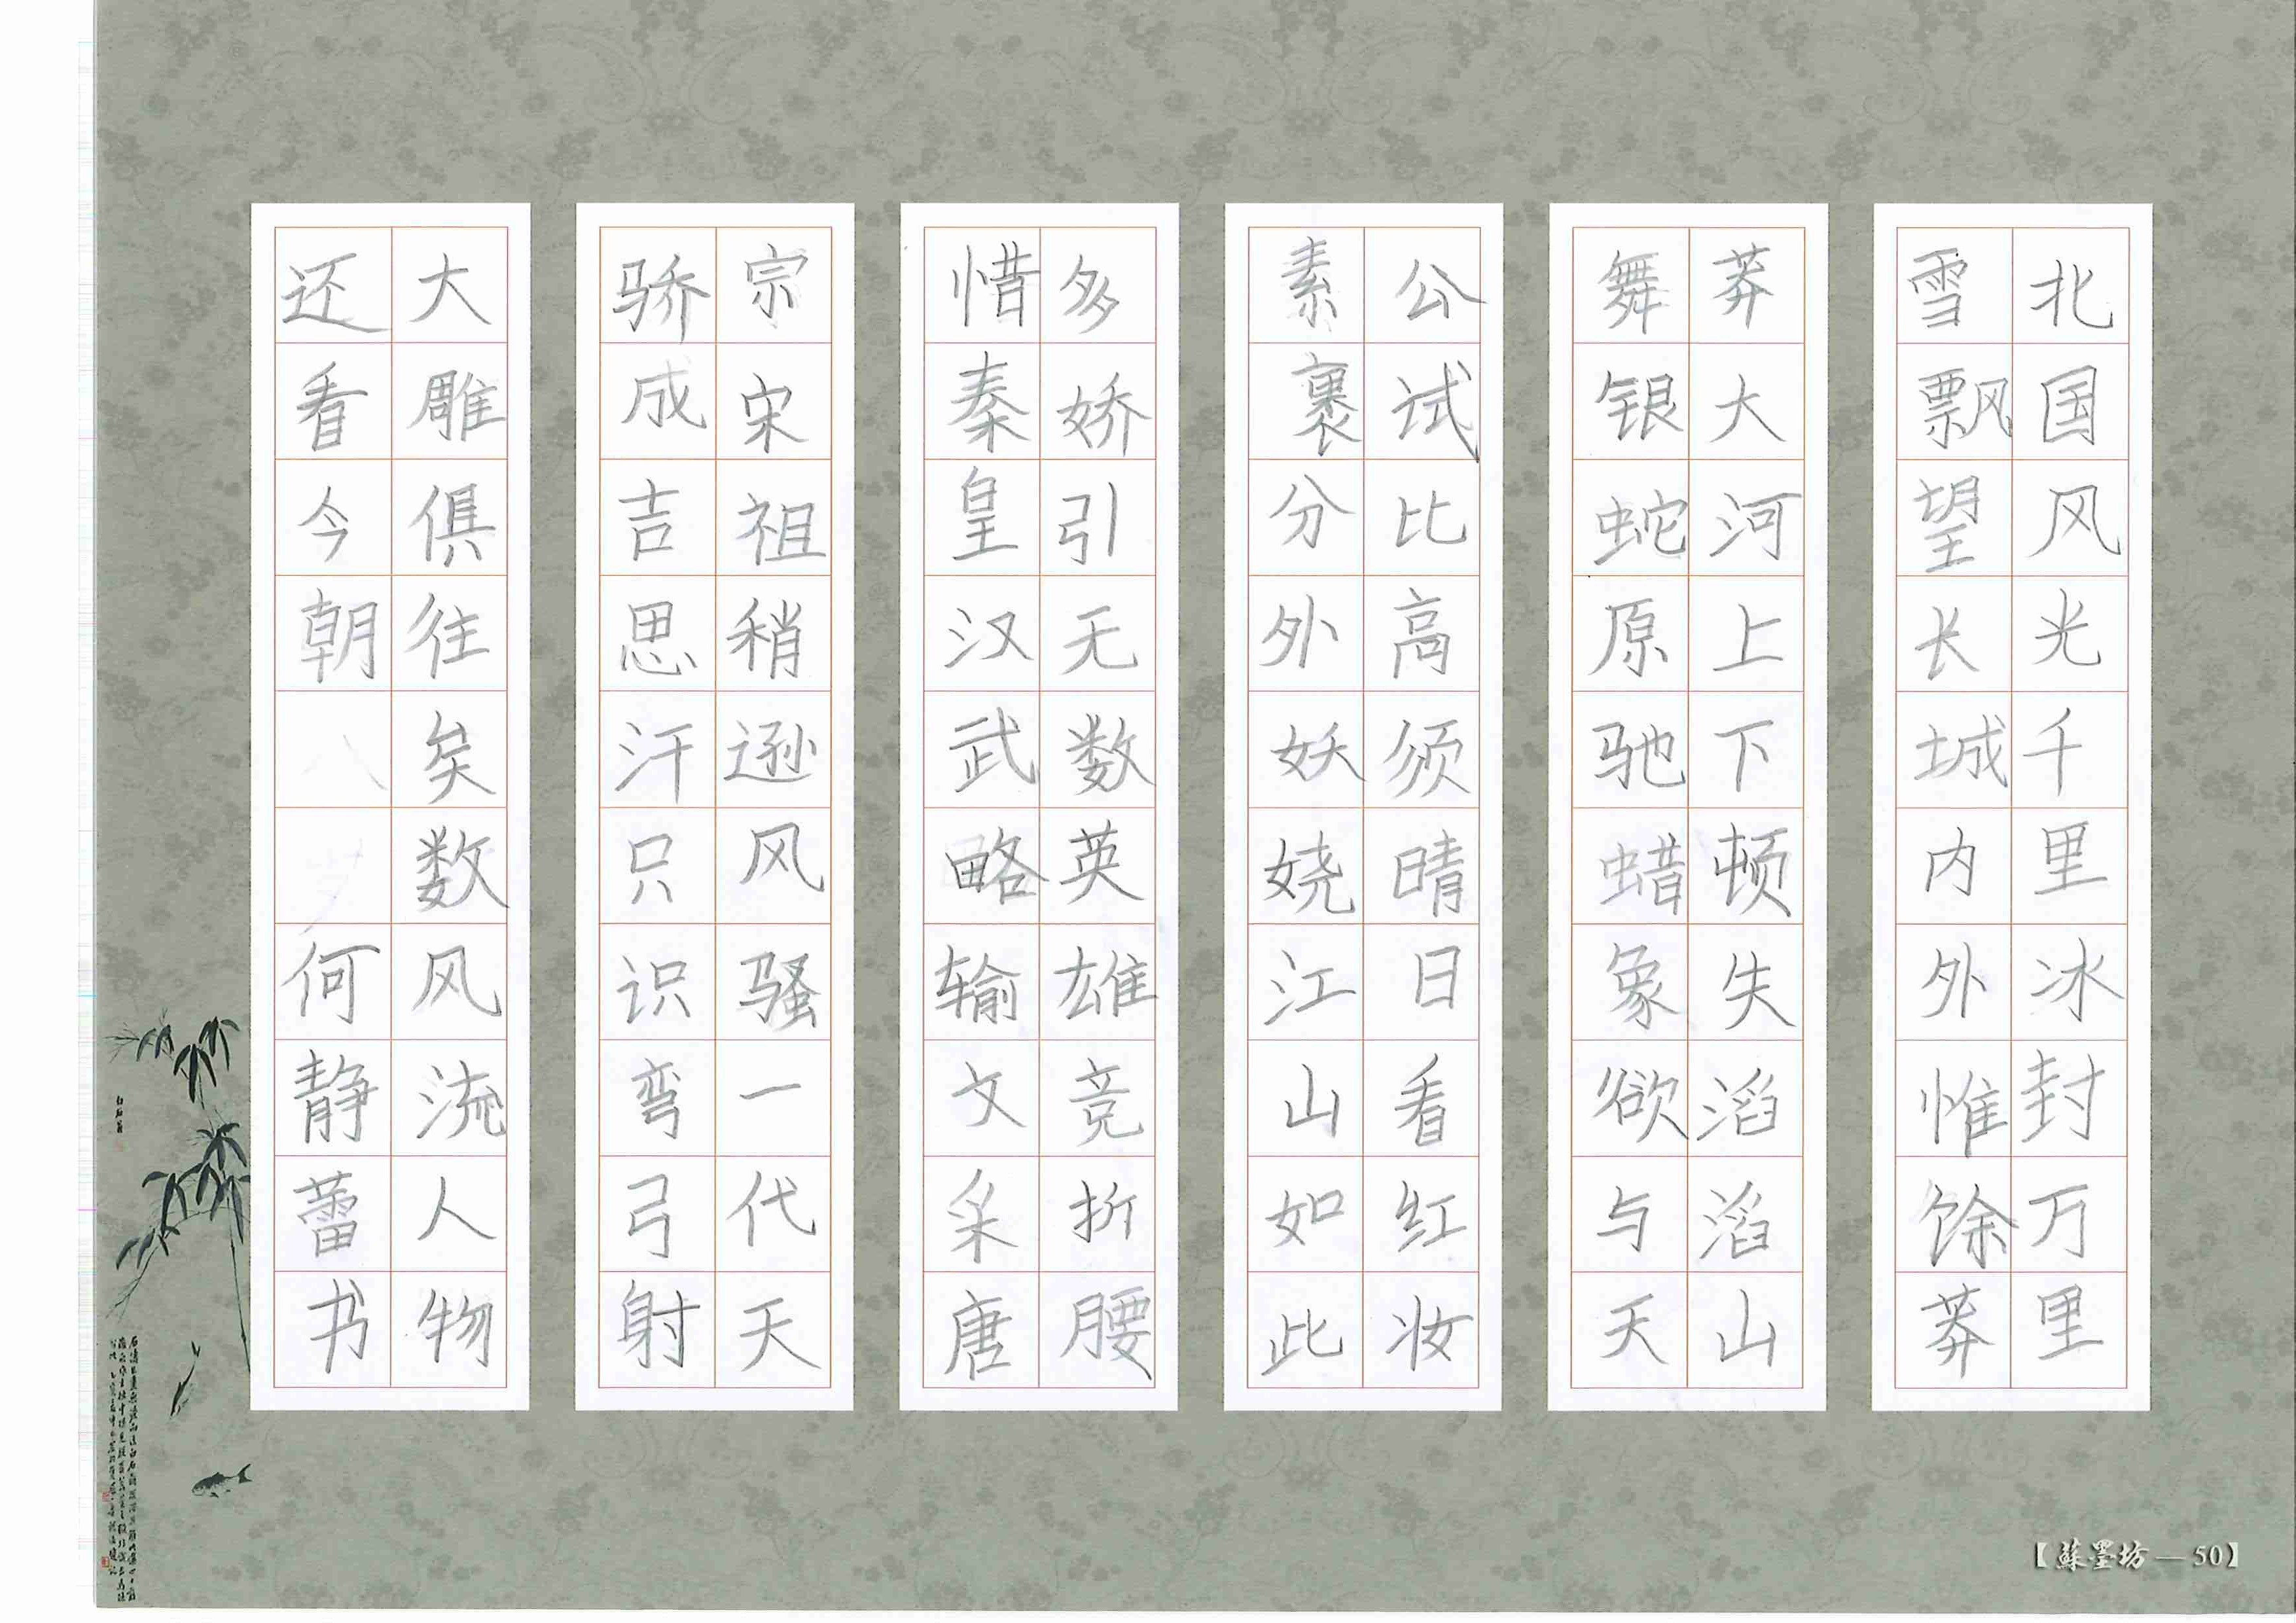 北国风光千里冰封万里
雪飘望长城内外惟馀莽
莽大河上下顿失滔滔山
舞银蛇原驰蜡象欲与天
公试比高须晴日看红妆
素裹分外妖娆江山如此
多娇引无数英雄竞折腰
惜秦皇汉武略输文采唐
宗宋祖稍逊风骚一代天
骄成吉思汗只识弯弓射
大雕俱往矣数风流人物
还看今朝
何静蕾书
【蘇墨坊—50】